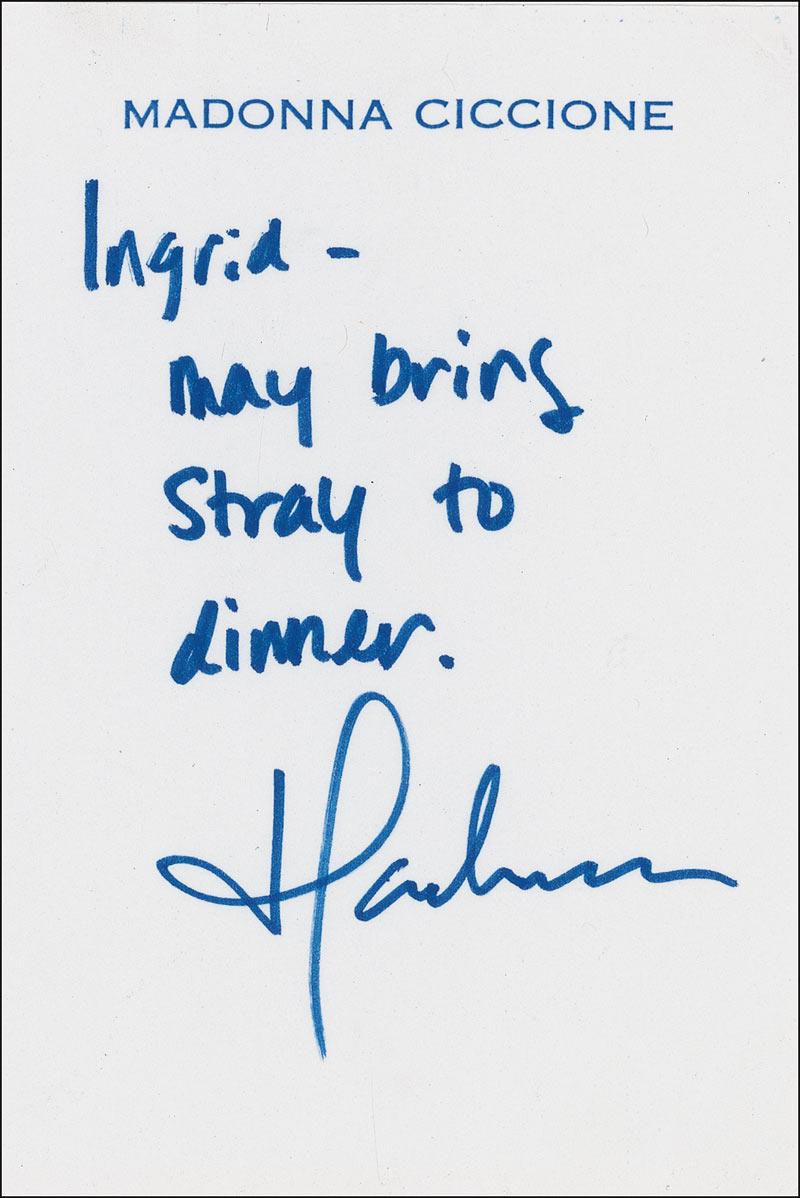 MADONNA CICCIONE
Ingrid -
may bring
Stray to
dinner.
Madonna